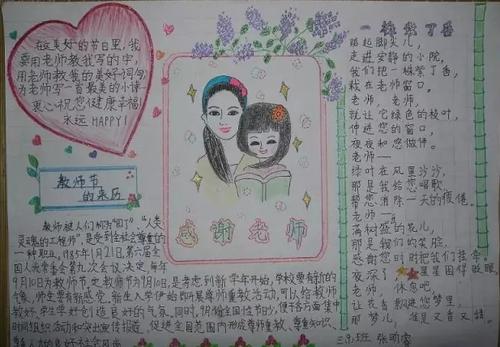 在这美好的节日里,我
要用老师教我写的字,
用老师教我的美好词句
为老师写一首最美的小诗
衷心祝您健康幸福!
永远 HAPPY!
教师节
的来历
教师被人们称为"园丁""人类
灵魂的工程师"是受到全社会尊重的
一种职业。1985年1月21日,第六届全
国人大常委会第九次会议决定,每年
9月10日为教师节。定教师节为9月10日,是考虑到新学年开始,学校要有新的
气象,师生要有新感觉。新生入学伊始即开展尊师重教活动,可以给教师
教好,学生学好创造良好的气氛。同时,9月份全国性节日少,便于各方面集中
时间组织活动和突出宣传报道,促进全国范围内形成尊师重教、尊重知识、
尊重人才的良好社会风尚
感谢老师
一株紫丁香
踮起脚尖儿,
走进安静的小院,
我们把一株紫丁香,
栽在老师窗口。
老师,老师,
就让它绿色的枝叶,
伸进您的窗口,
夜夜和您做伴。
老师——
绿叶在风里沙沙,
那是我给您唱歌,
帮您消除一天的疲倦。
老师——
满树盛的花儿,
那是我们的笑脸,
感谢您时时把我们挂牵。
夜深了 星星困得眨眼,
老师,休息吧,
让花香飘进您梦里,
那梦儿,准是又香又甜。
三.9.班 张昕睿